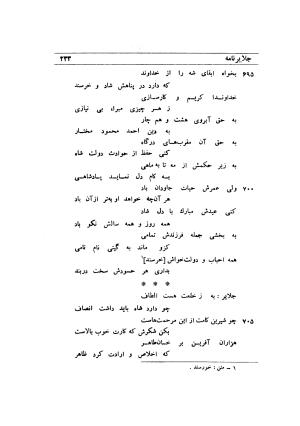 جلایرنامه ۲۳۳
۶۹۵ بخواه ابقای شه را از خداوند
که دارد در پناهش شاد و خرسند
خداوندا کریم و کارسازی
ز هر چیزی مبراء بی نیازی
به حق آبروی هشت و هم چار
به دین احمد محمود مختار
به حق آن مقرب‌های درگاه
کنی حفظ از حوادث دولت شاه
به زیر حکمش از مه تا به ماهی
به کام دل نماید پادشاهی
۷۰۰ ولی عمرش حیات جاودان باد
هر آن‌چه خواهد او بهتر از آن باد
کنی عیدش مبارک با دل شاد
همه روز و همه سالش نکو باد
به بخشی جمله فرزندش تمامی
کزو ماند به گیتی نام نامی
همه احباب و دولت‌خواش [خرسند]۱
بداری هر حسودش سخت دربند
* * *
جلایر: به ز خلعت هست الطاف
چو دارد شاه باید داشت انصاف
۷۰۵ چو شیرین کامت از این مرحمت‌هاست
بکن شکرش که کارت خوب بالاست
هزاران آفرین بر خسان‌طاهر
که اخلاص و ارادت کرد ظاهر
۱ – متن : خورسند .